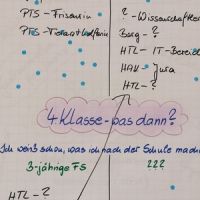 PTS - Friseurin
PTS - Tierarzthelferin
? - Wissenschaftler
Borg - ?
HTL - IT-Bereich
HAK - Jura
HTL - ?
4. Klasse - was dann?
Ich weiß schon, was ich nach der Schule mache
3-jährige FS
???
HTL - ?